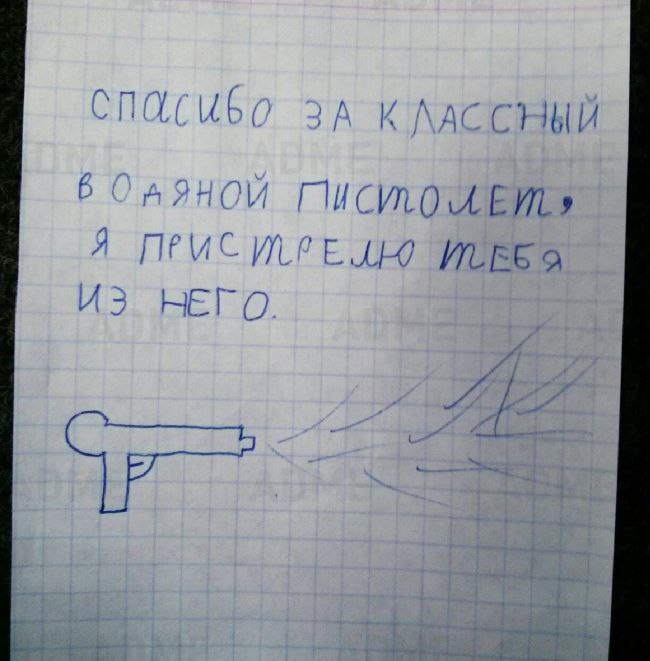 СПАСИБО ЗА КЛАССНЫЙ
ВОДЯНОЙ ПИСТОЛЕТ,
Я ПРИСТРЕЛЮ ТЕБЯ
ИЗ НЕГО.
ADME
ADME
ADME
ADME
ADME
ADME
ADME
ADME